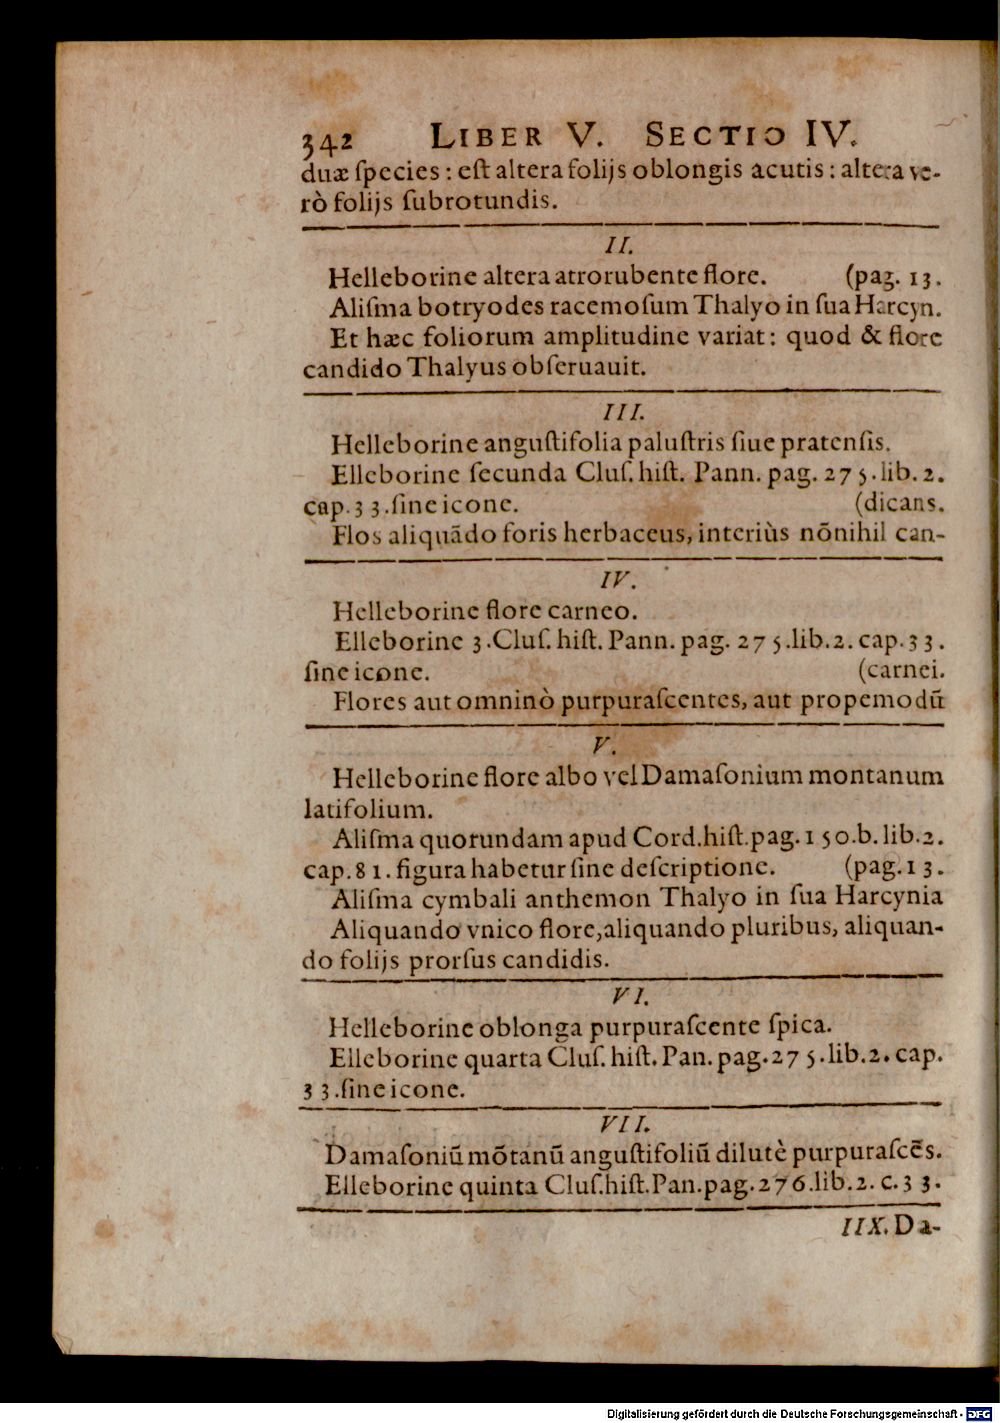 342 LIBER V. SECTIO IV.
duæ ſpecies : eſt altera folijs oblongis acutis : altera ve-
rò folijs ſubrotundis.
II.
Helleborine altera atrorubente flore. (pag. 13.
Aliſma botryodes racemoſum Thalyo in ſua Harcyn.
Et hæc foliorum amplitudine variat : quod & flore
candido Thalyus obſeruauit.
III.
Helleborine anguſtifolia paluſtris ſiue pratenſis.
Elleborine ſecunda Cluſ. hiſt. Pann. pag. 275. lib. 2.
cap. 33. ſine icone. (dicans.
Flos aliquādo foris herbaceus, interiùs nōnihil can-
IV.
Helleborine flore carneo.
Elleborine 3. Cluſ. hiſt. Pann. pag. 275. lib. 2. cap. 33.
ſine icone. (carnei.
Flores aut omninò purpuraſcentes, aut propemodū
V.
Helleborine flore albo vel Damaſonium montanum
latifolium.
Aliſma quorundam apud Cord. hiſt. pag. 150. b. lib. 2.
cap. 81. figura habetur ſine deſcriptione. (pag. 13.
Aliſma cymbali anthemon Thalyo in ſua Harcynia
Aliquando vnico flore, aliquando pluribus, aliquan-
do folijs prorſus candidis.
VI.
Helleborine oblonga purpuraſcente ſpica.
Elleborine quarta Cluſ. hiſt. Pan. pag. 275. lib. 2. cap.
33. ſine icone.
VII.
Damaſoniū mōtanū anguſtifoliū dilutè purpuraſcēs.
Elleborine quinta Cluſ. hiſt. Pan. pag. 276. lib. 2. c. 33.
IIX. Da-
Digitalisierung gefördert durch die Deutsche Forschungsgemeinschaft - DFG